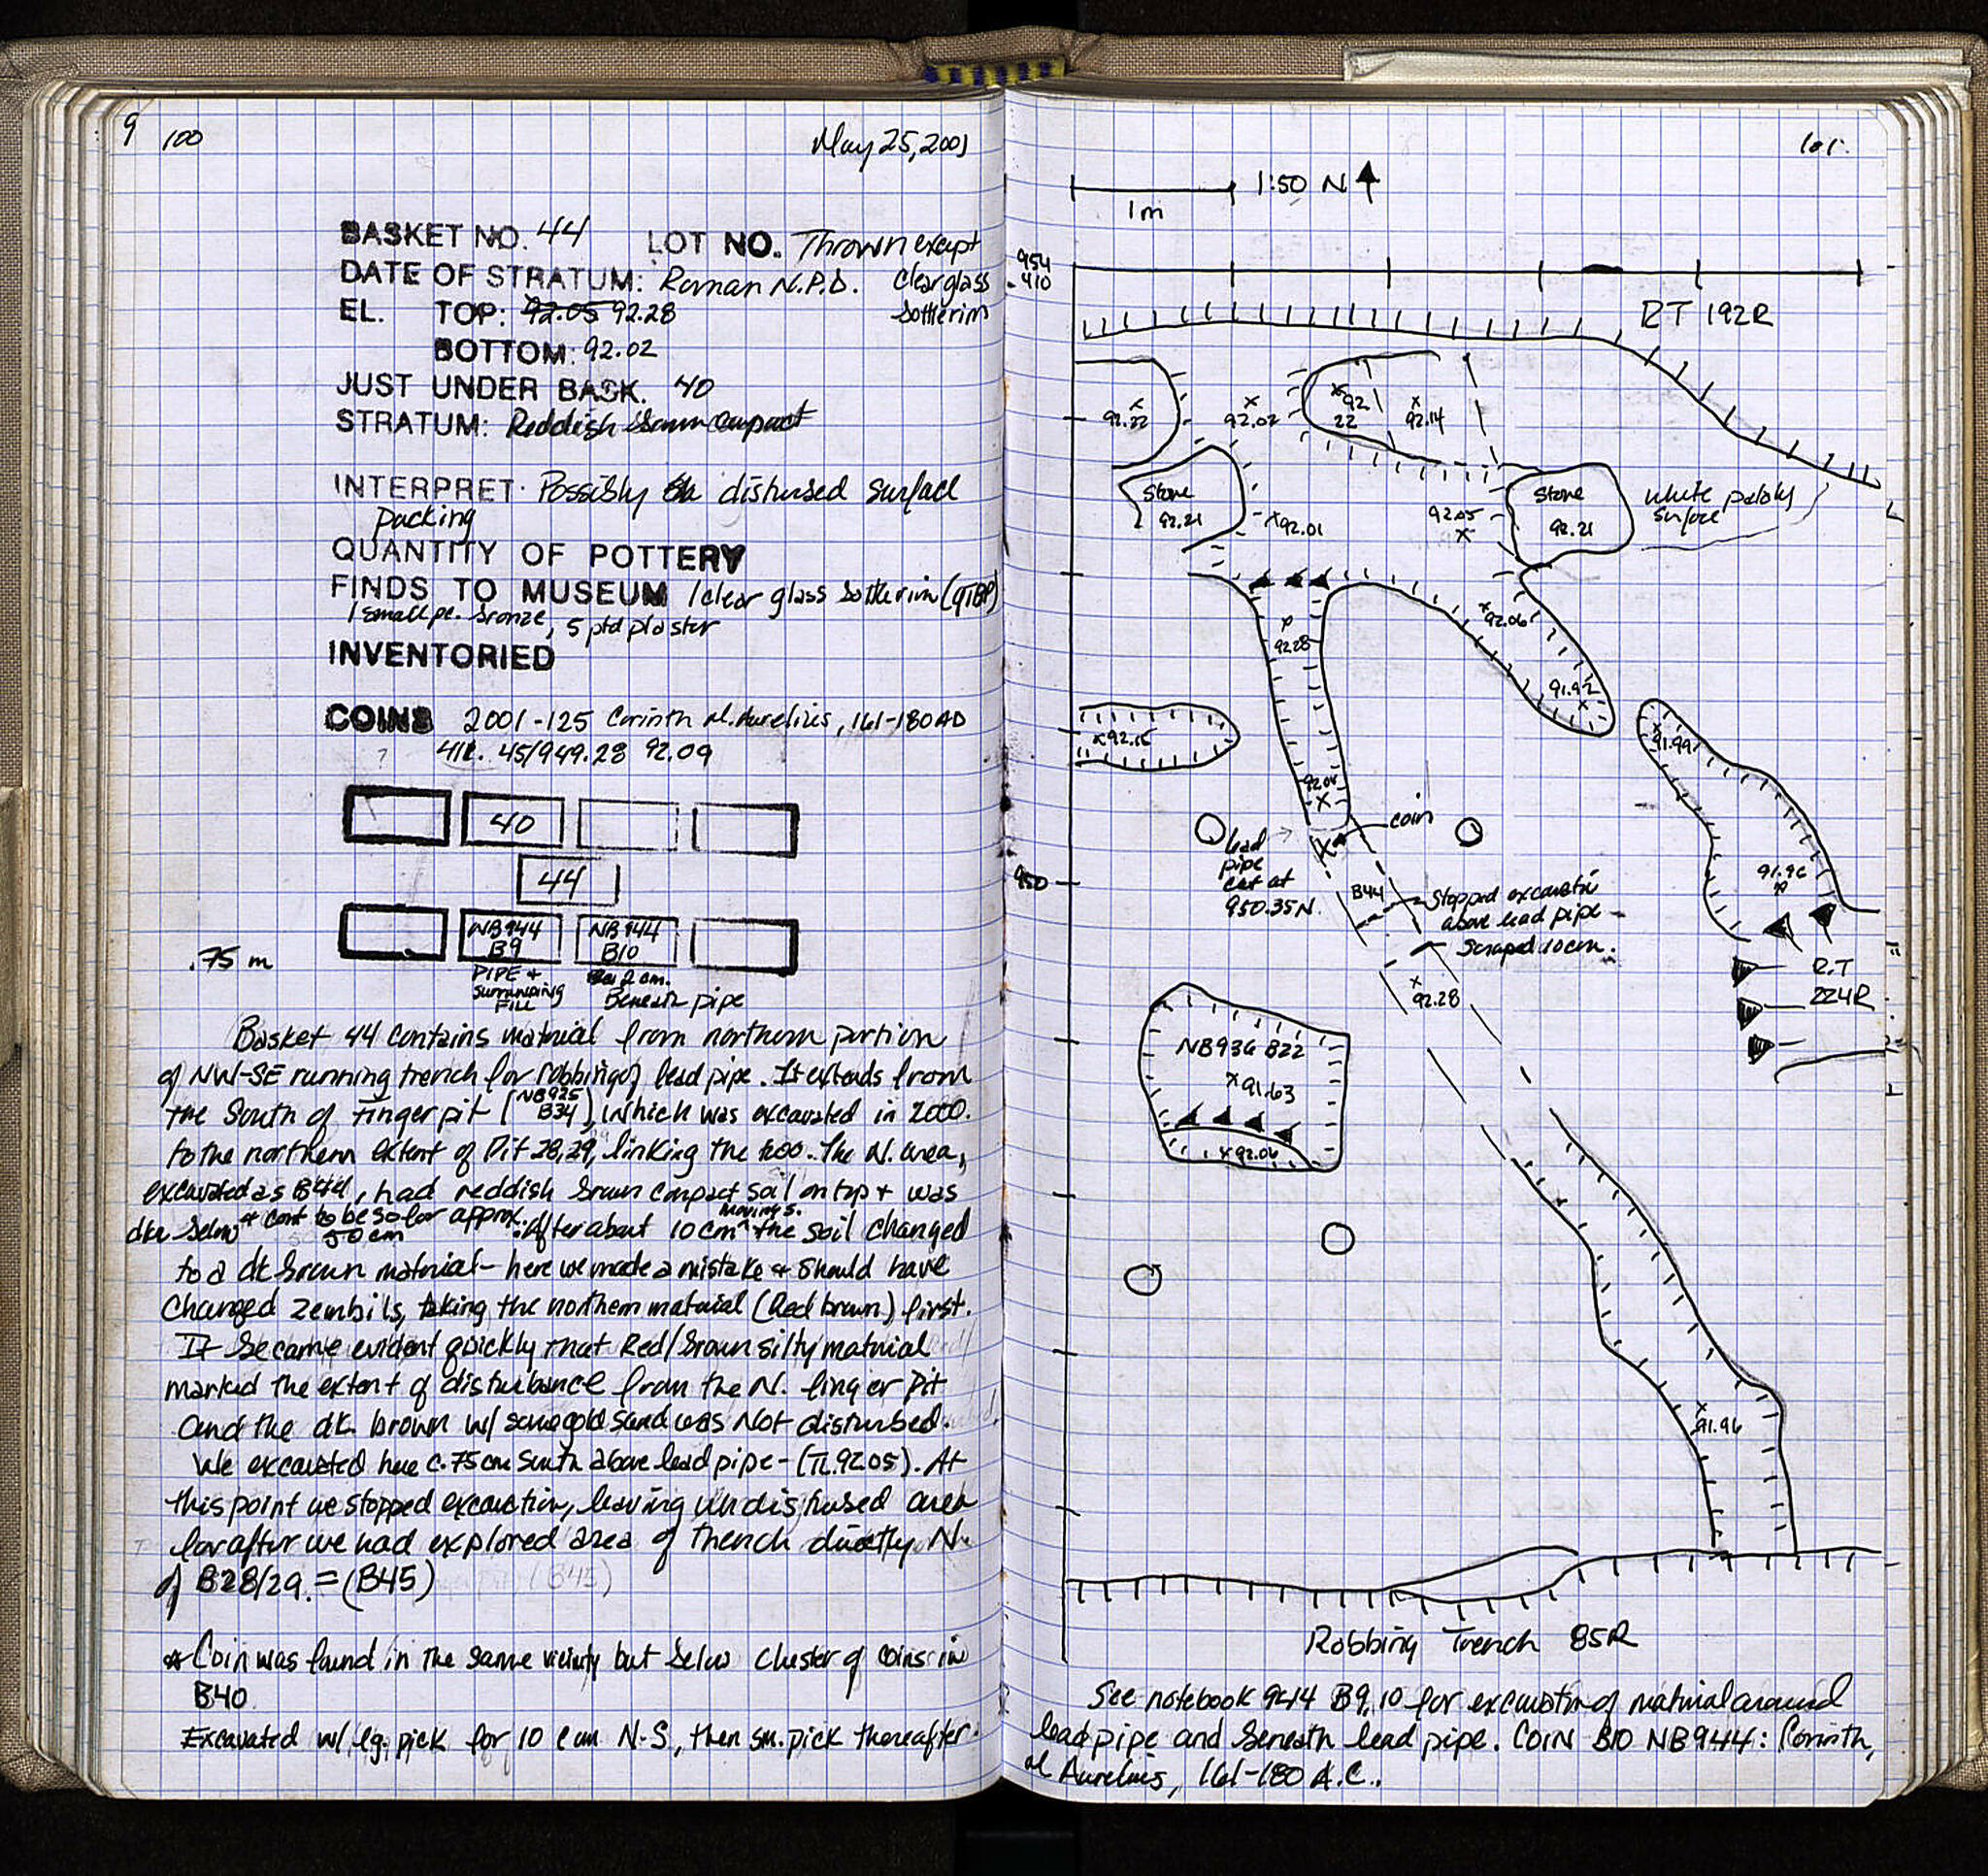 9 100
May 25, 2001
BASKET NO. 44 LOT NO. Thrown except
DATE OF STRATUM: Roman N.P.D. clear glass
EL. TOP: 92.05 92.28
BOTTOM: 92.02
JUST UNDER BASK. 40
STRATUM: Reddish brown compact
INTERPRET. Possibly disturbed surface
packing
QUANTITY OF POTTERY
FINDS TO MUSEUM 1 clear glass
1 small pc. bronze, 5 ptd plaster
INVENTORIED
COINS 2001-125 Corinth M. Aurelius, 161-180 AD
45/949.28 92.09
40
44
NB944 NB944
B9 B10
.75 m
PIPE + 2 cm.
surrounding Beneath pipe
FILL
Basket 44 contains material from northern portion
of NW-SE running trench for robbing of lead pipe. It extends from
the South of Finger pit (NB925 B34), which was excavated in 2000.
to the northern extent of Pit 28,29, linking the two. The N. area,
excavated as B44, had reddish brown compact soil on top + was
dkr below + cont to be so for approx. 50 cm. After about 10 cm moving s. the soil changed
to a dk brown material - here we made a mistake + should have
changed zembils, taking the northern material (Red brown) first.
It became evident quickly that Red/brown silty material
marked the extent of disturbance from the N. finger pit
and the dk. brown w/ some gold sand was Not disturbed.
We excavated here c. 75 cm South above lead pipe - (TL. 92.05). At
this point we stopped excavation, leaving undisturbed area
for after we had explored area of trench directly N.
of B28/29. = (B45)
* Coin was found in the same vicinity but below cluster of coins in
B40
Excavated w/ lg. pick for 10 cm N-S, then sm. pick thereafter.
101.
1:50 N
1m
954
410
RT 192R
92.22
92.02
92
22
92.14
Stone
92.21
92.01
92.05
Stone
92.21
white pebbly
surface
92.28
92.06
91.92
92.15
91.99
coin
lead
pipe
cut at
950.35N.
950
B44
Stopped excavation
above lead pipe -
Scraped 10cm.
91.96
R.T
224R
92.28
NB936 B22
91.63
92.06
91.96
Robbing Trench 85R
See notebook 944 B9,10 for excavation of material around
lead pipe and beneath lead pipe. Coin B10 NB944: Corinth,
M Aurelius, 161-180 A.C..